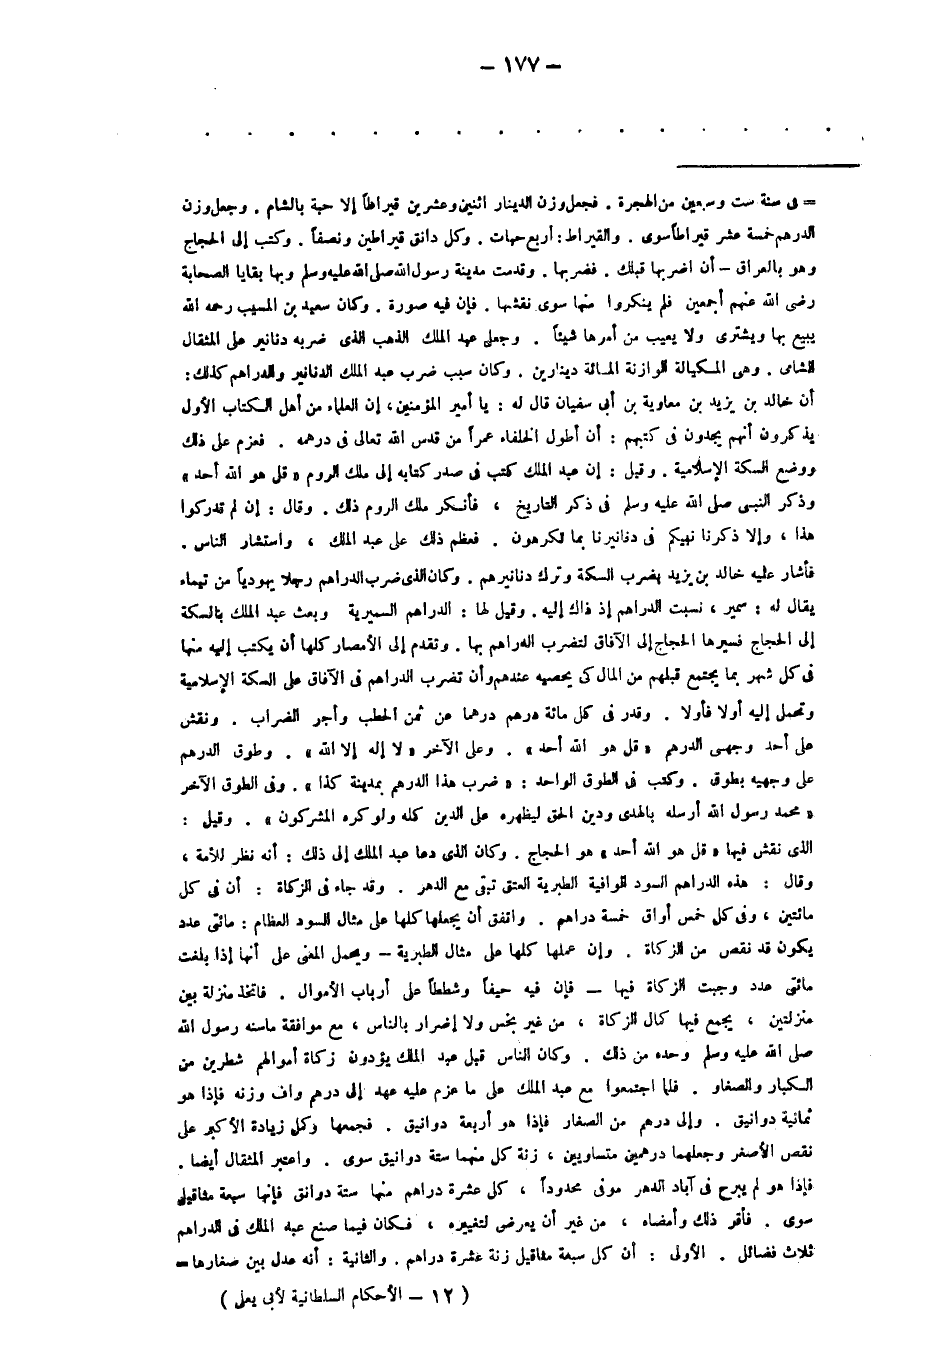 — ١٧٧ —
. . . . . . . . . . . . . . . .
= فى سنة ست وسبعين من الهجرة . فجعل وزن الدينار اثنين وعشرين قيراطاً إلا حبة بالشام . وجعل وزن
الدرهم خمسة عشر قيراطاً سوى . والقيراط : أربع حبات . وكل دانق قيراطين ونصفاً . وكتب إلى الحجاج
وهو بالعراق – أن اضربها قبلك . فضربها . وقدمت مدينة رسول الله صلى الله عليه وسلم وبها بقايا الصحابة
رضى الله عنهم أجمعين فلم ينكروا منها سوى نقشها . فإن فيه صورة . وكان سعيد بن المسيب رحمه الله
يبيع بها ويشترى ولا يعيب من أمرها شيئاً . وجعل عبد الملك الذهب الذى ضربه دنانير على المثقال
الشامى . وهى المكيالة الوازنة المائة دينارين . وكان سبب ضرب عبد الملك الدنانير والدراهم كذلك :
أن خالد بن يزيد بن معاوية بن أبى سفيان قال له : يا أمير المؤمنين ، إن العلماء من أهل الكتاب الأول
يذكرون أنهم يجدون فى كتبهم : أن أطول الخلفاء عمراً من قدس الله تعالى فى درهمه . فعزم على ذلك
ووضع السكة الإسلامية . وقيل : إن عبد الملك كتب فى صدر كتابه إلى ملك الروم « قل هو الله أحد »
وذكر النبى صلى الله عليه وسلم فى ذكر التاريخ ، فأنكر ملك الروم ذلك . وقال : إن لم تدركوا
هذا ، وإلا ذكرنا نبيكم فى دنانيرنا بما تكرهون . فعظم ذلك على عبد الملك ، واستشار الناس .
فأشار عليه خالد بن يزيد بضرب السكة وترك دنانيرهم . وكان الذى ضرب الدراهم رجلا يهودياً من تيماء
يقال له : سمير ، نسبت الدراهم إذ ذاك إليه . وقيل لها : الدراهم السميرية وبعث عبد الملك بالسكة
إلى الحجاج فسيرها الحجاج إلى الآفاق لتضرب الدراهم بها . وتقدم إلى الأمصار كلها أن يكتب إليه منها
فى كل شهر بما يجتمع قبلهم من المال كى يحصيه عندهم وأن تضرب الدراهم فى الآفاق على السكة الإسلامية
وتحمل إليه أولا فأولا . وقدر فى كل مائة درهم درهما عن ثمن الحطب وأجر الضراب . ونقش
على أحد وجهى الدرهم « قل هو الله أحد » . وعلى الآخر « لا إله إلا الله » . وطوق الدرهم
على وجهيه بطوق . وكتب فى الطوق الواحد : « ضرب هذا الدرهم بمدينة كذا » . وفى الطوق الآخر
« محمد رسول الله أرسله بالهدى ودين الحق ليظهره على الدين كله ولو كره المشركون » . وقيل :
الذى نقش فيها « قل هو الله أحد » هو الحجاج . وكان الذى دعا عبد الملك إلى ذلك : أنه نظر للأمة ،
وقال : هذه الدراهم السود الوافية الطبرية العتق تبقى مع الدهر . وقد جاء فى الزكاة : أن فى كل
مائتين ، وفى كل خمس أواق خمسة دراهم . واتفق أن يجعلها كلها على مثال السود العظام : مائتى عدد
يكون قد نقص من الزكاة . وإن عملها كلها على مثال الطبرية – ويحمل المعنى على أنها إذا بلغت
مائتى عدد وجبت الزكاة فيها – فإن فيه حيفاً وشططاً على أرباب الأموال . فاتخذ منزلة بين
منزلتين ، يجمع فيها كمال الزكاة ، من غير بخس ولا إضرار بالناس ، مع موافقة ماسنه رسول الله
صلى الله عليه وسلم وحده من ذلك . وكان الناس قبل عبد الملك يؤدون زكاة أموالهم شطرين من
الكبار والصغار . فلما اجتمعوا مع عبد الملك على ما عزم عليه عهد إلى درهم واف وزنه فإذا هو
ثمانية دوانيق . وإلى درهم من الصغار فإذا هو أربعة دوانيق . فجمعها وكمل زيادة الأكبر على
نقص الأصغر وجعلهما درهمين متساويين ، زنة كل منهما ستة دوانيق سوى . واعتبر المثقال أيضا .
فإذا هو لم يبرح فى آباد الدهر موفى محدوداً ، كل عشرة دراهم منها ستة دوانق فإنها سبعة مثاقيل
سوى . فأقر ذلك وأمضاه ، من غير أن يعرض لتغييره ، فكان فيما صنع عبد الملك فى الدراهم
ثلاث فضائل . الأولى : أن كل سبعة مثاقيل زنة عشرة دراهم . والثانية : أنه عدل بين صغارها =
( ١٢ – الأحكام السلطانية لأبى يعلى )